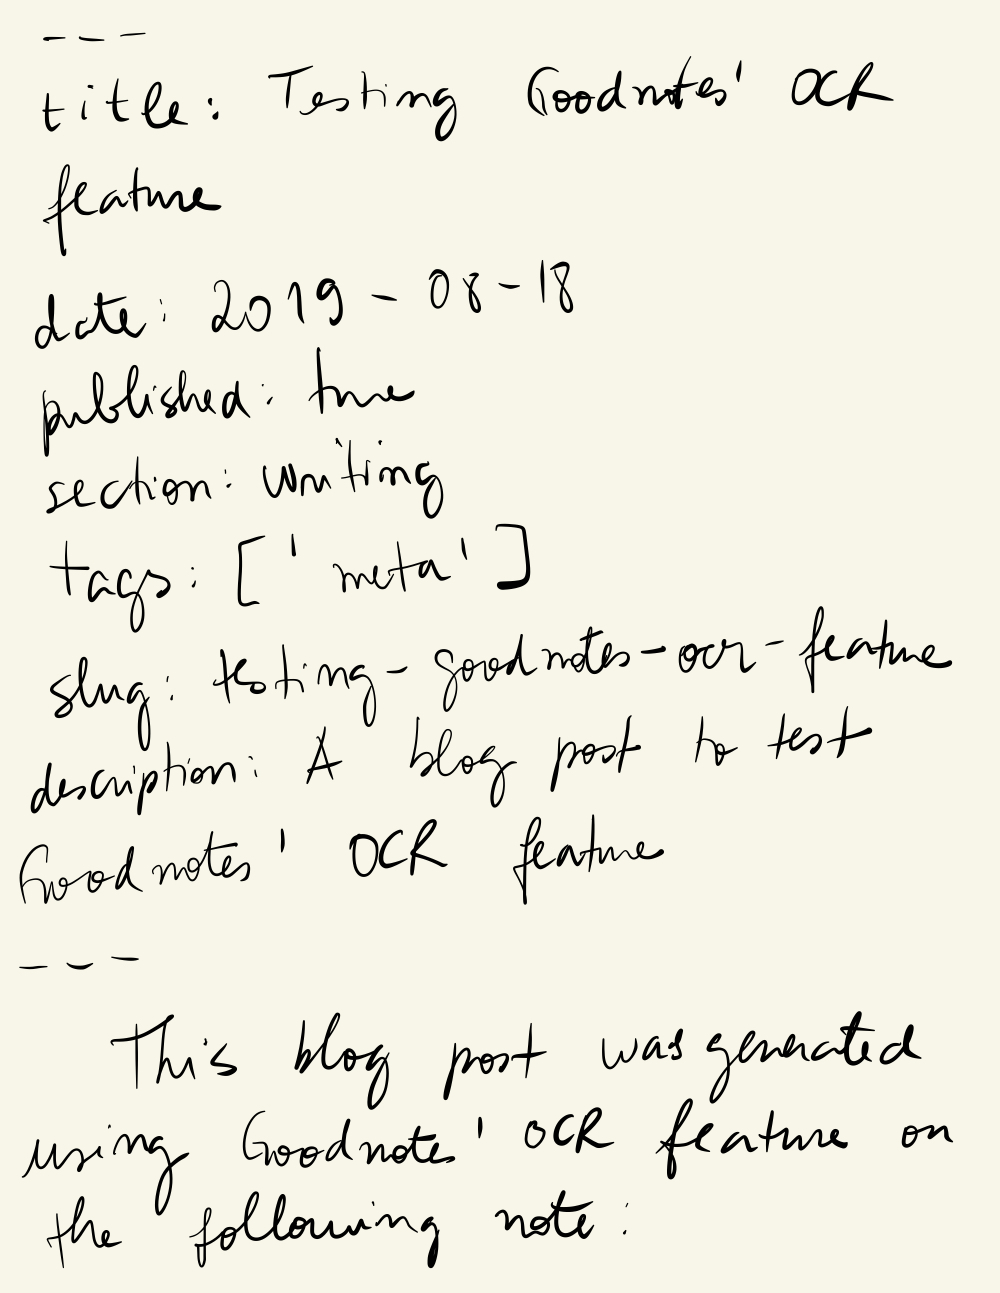 ---
title: Testing Goodnotes' OCR
feature
date: 2019-08-18
published: true
section: writing
tags: ['meta']
slug: testing-goodnotes-ocr-feature
description: A blog post to test
Goodnotes' OCR feature
---
This blog post was generated
using Goodnotes' OCR feature on
the following note: